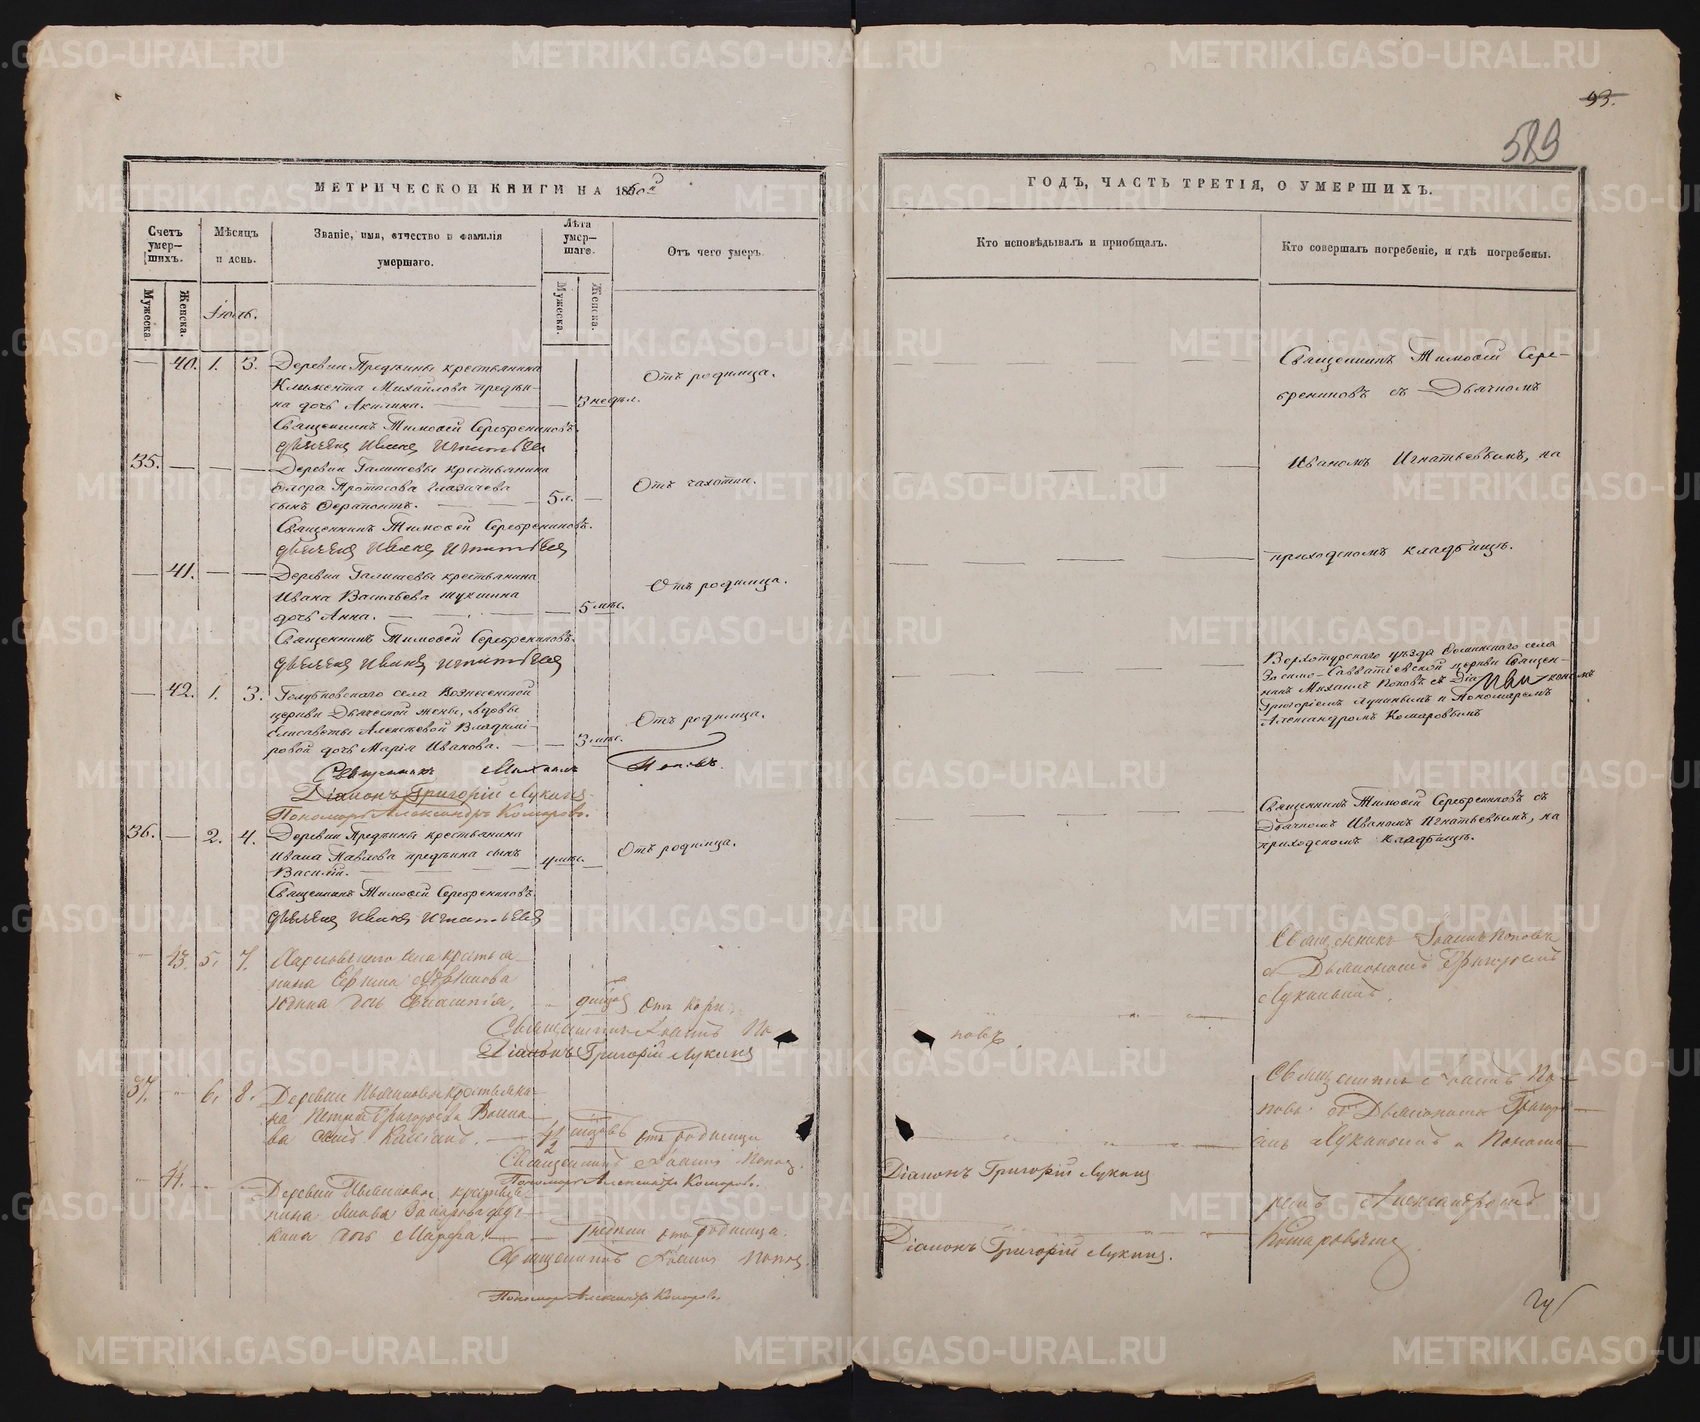 93.
589
МЕТРИЧЕСКОЙ КНИГИ НА 1860й
ГОДЪ, ЧАСТЬ ТРЕТІЯ, О УМЕРШИХЪ.
Счетъ умер—шихъ.
Мѣсяцъ и день.
Званіе, имя, отчество и фамилія умершаго.
Лѣта умер—шаго.
Отъ чего умеръ.
Кто исповѣдывалъ и приобщалъ.
Кто совершалъ погребеніе, и гдѣ погребены.
Мужеска.
Женска.
Іюль.
Мужеска.
Женска.
40. 1. 3. Деревни Предѣины крестьянина
Климента Михайлова предѣи-
на дочь Акилина. 3 недѣл. Отъ родимца.
Священникъ Тимофей Серебрениковъ.
дьячекъ Иванъ Игнатьевъ
35. Деревни Галишевы крестьянина
Флора Протасова Глазачева
сынъ Ферапонтъ. 5 л. Отъ чахотки.
Священникъ Тимофей Серебрениковъ.
дьячекъ Иванъ Игнатьевъ
41. Деревни Галишевы крестьянина
Ивана Васильева
дочь Анна. 5 мѣс. Отъ родимца.
Священникъ Тимофей Серебрениковъ.
дьячекъ Иванъ Игнатьевъ
42. 1. 3. Голубковскаго села Вознесенской
церкви Дьяческой жены, вдовы
Елисаветы Алексѣевой Владимі-
ровой дочь Марія Иванова. 3 мѣс. Отъ родимца.
Священникъ Михаилъ Поповъ.
Діаконъ Григорій Лукинъ
Пономарь Александръ Комаровъ.
36. 2. 4. Деревни Предѣины крестьянина
Ивана Павлова предѣина сынъ
Василій. 4 мѣс. Отъ родимца.
Священникъ Тимофей Серебрениковъ
дьячекъ Иванъ Игнатьевъ
43. 5. 7. села крестья-
нина
дочь Отъ кори
Священникъ Іоаннъ По
повъ
Діаконъ Григорій Лукинъ
37. 6. 8. Деревни крестьяни-
на Петра Григорьева
сынъ отъ родимца
Священникъ Іоаннъ Поповъ.
Пономарь Александръ Комаровъ.
Діаконъ Григорій Лукинъ
44. Деревни крестья-
нина
дочь Марфа. отъ родимца.
Священникъ Іоаннъ Поповъ.
Діаконъ Григорій Лукинъ.
Пономарь Александръ Комаровъ
Священникъ Тимофей Сере-
брениковъ съ Дьячкомъ
Иваномъ Игнатьевымъ, на
приходскомъ кладбищѣ.
Верхотурскаго уѣзда Фоминскаго села
Зосимо-Савватіевской церкви Священ-
никъ Михаилъ Поповъ съ Діакономъ
Григоріемъ Лукинымъ и Пономаремъ
Александромъ Комаровымъ
Священникъ Тимофей Серебрениковъ съ
Дьячкомъ Иваномъ Игнатьевымъ, на
приходскомъ кладбищѣ.
Священникъ Іоаннъ Поповъ
съ Дьякономъ Григоріемъ
Лукинымъ.
Священникъ Іоаннъ По-
повъ съ Дьякономъ Григорі-
емъ Лукинымъ и Понома-
ремъ Александромъ
Комаровымъ
METRIKI.GASO-URAL.RU